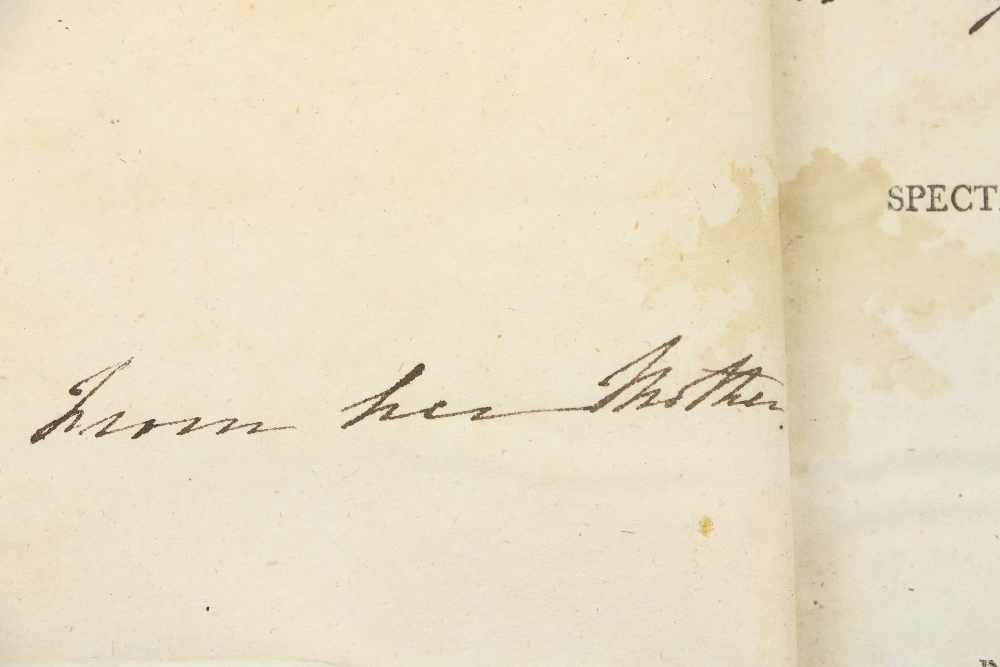 From her Mother.
SPECT